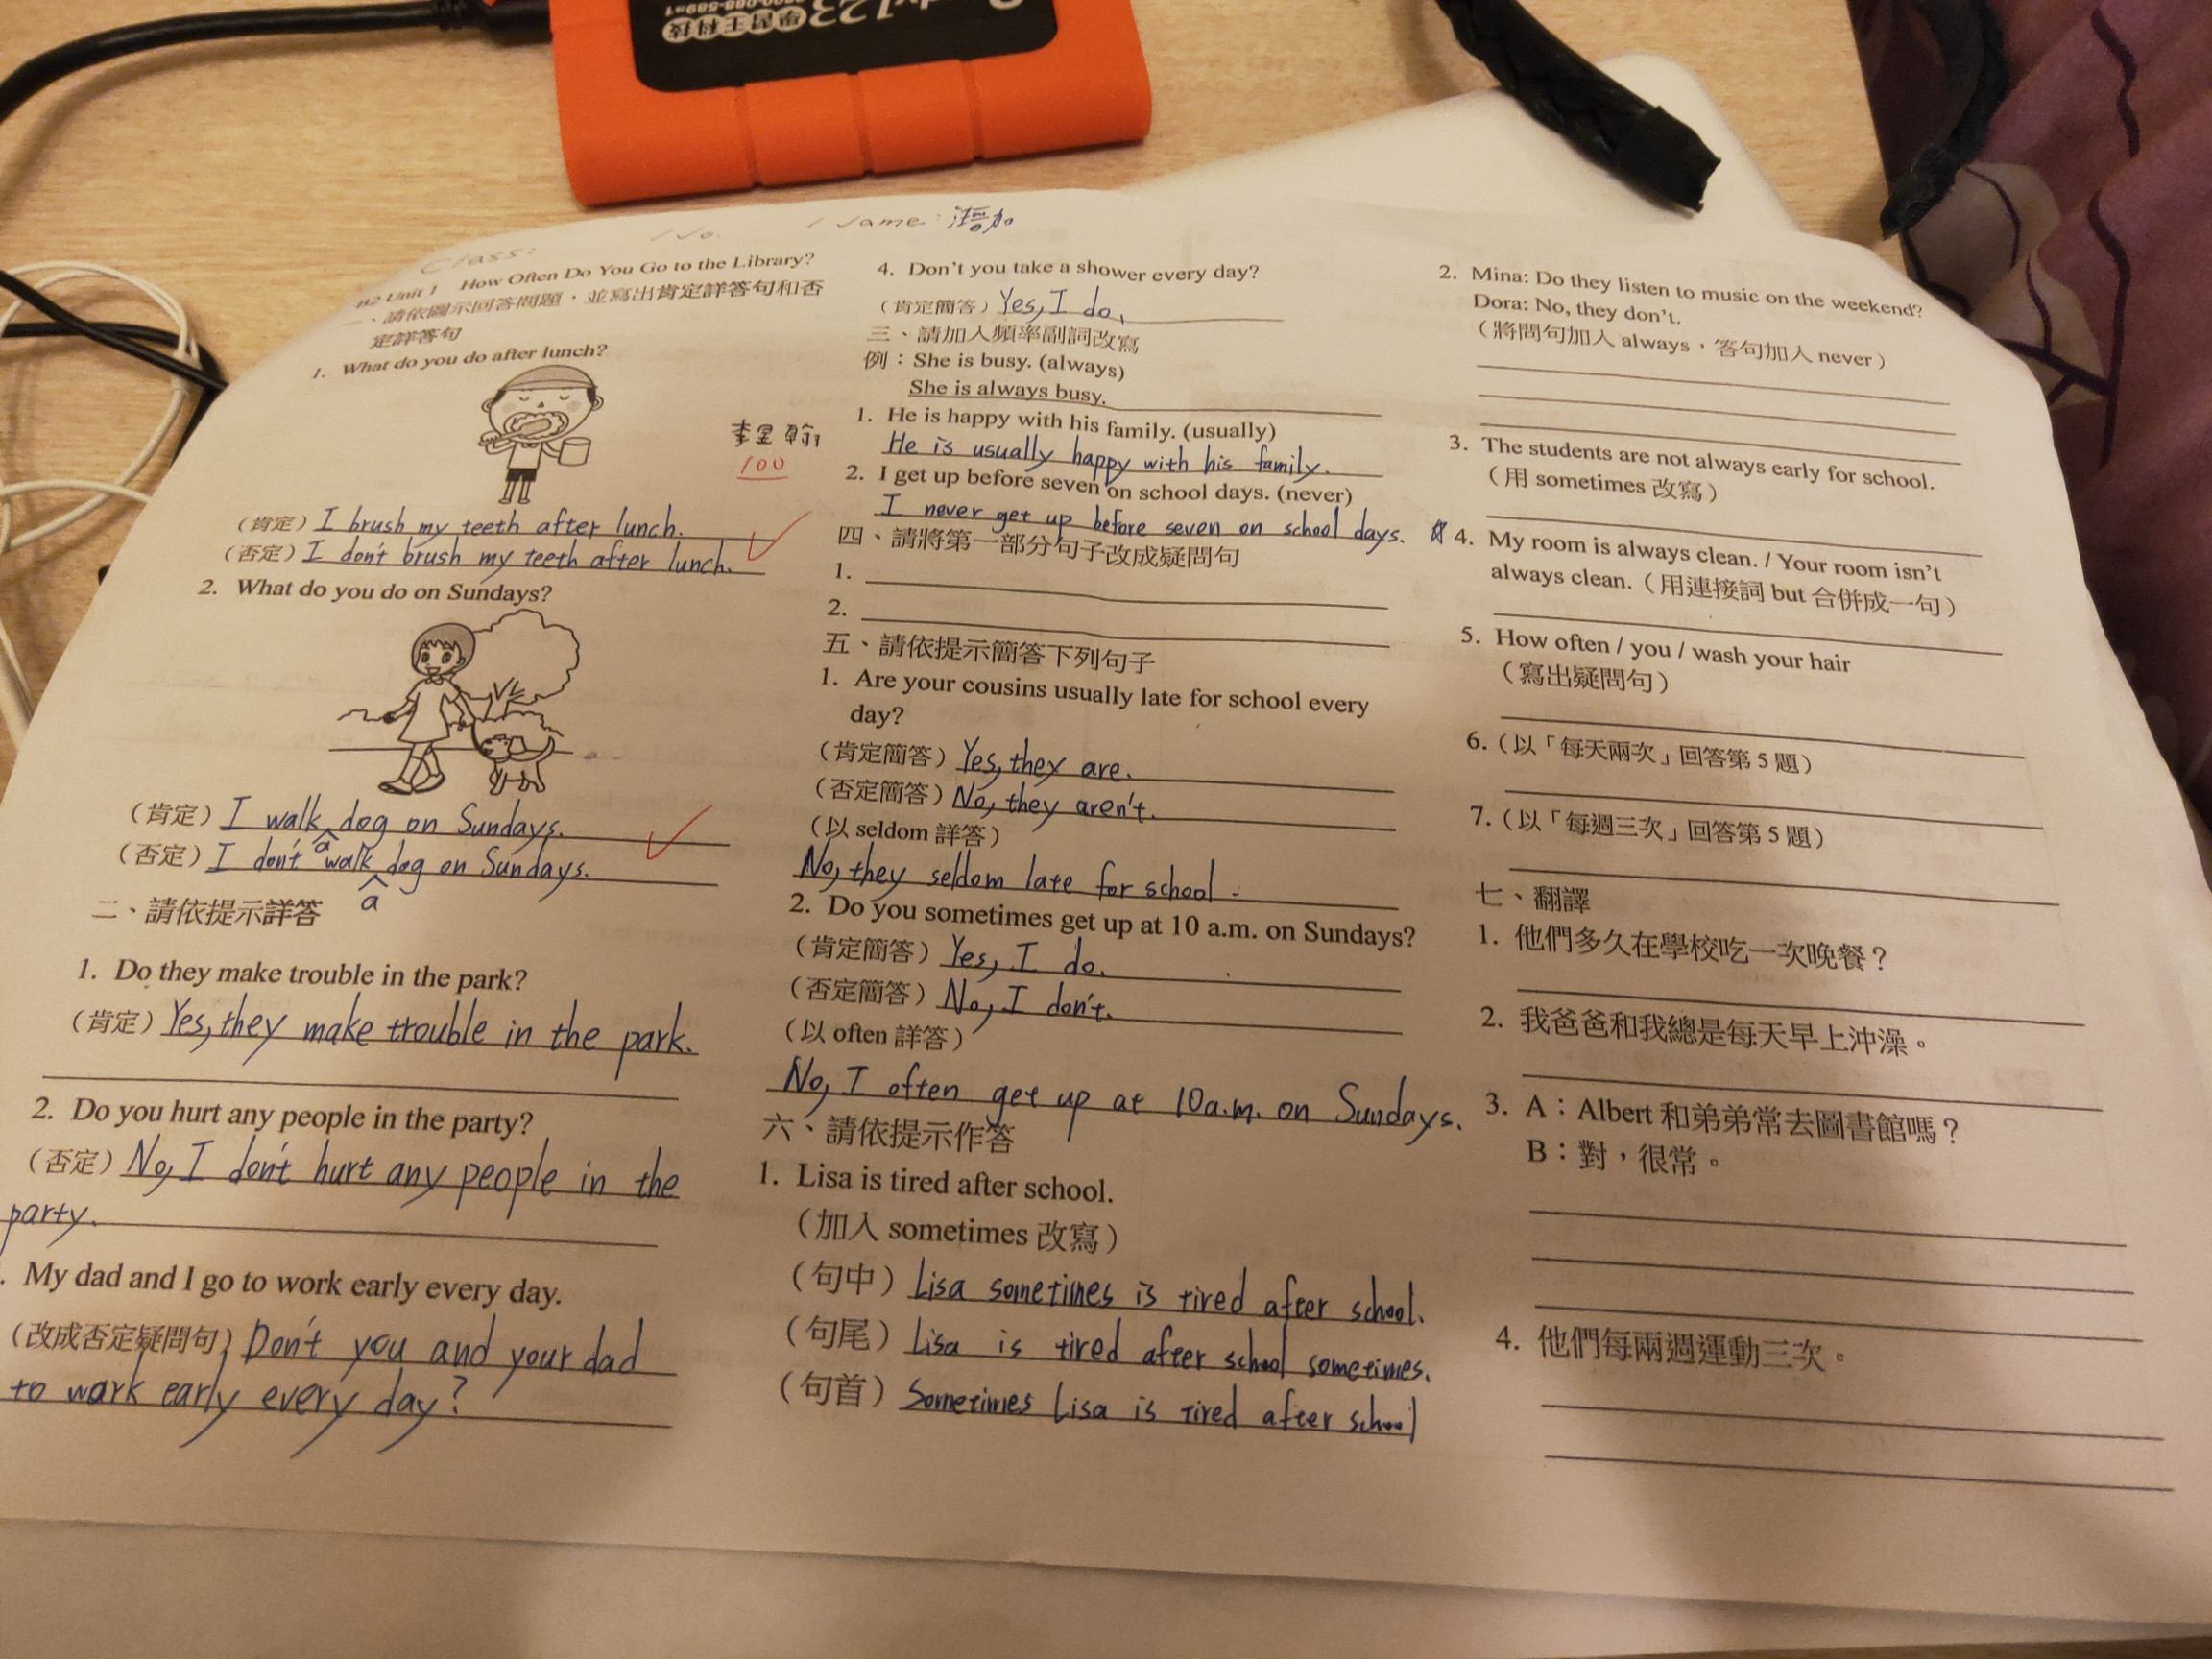 學習王科技
Class:
No.
Name:
B2 Unit 1 How Often Do You Go to the Library?
一、請依圖示回答問題，並寫出肯定詳答句和否
定詳答句
1. What do you do after lunch?
100
(肯定) I brush my teeth after lunch.
(否定) I don't brush my teeth after lunch.
2. What do you do on Sundays?
(肯定) I walk a dog on Sundays.
(否定) I don't walk a dog on Sundays.
二、請依提示詳答
1. Do they make trouble in the park?
(肯定) Yes, they make trouble in the park.
2. Do you hurt any people in the party?
(否定) No, I don't hurt any people in the
party.
. My dad and I go to work early every day.
(改成否定疑問句) Don't you and your dad
to work early every day?
4. Don't you take a shower every day?
(肯定簡答) Yes, I do.
三、請加入頻率副詞改寫
例：She is busy. (always)
She is always busy.
1. He is happy with his family. (usually)
He is usually happy with his family.
2. I get up before seven on school days. (never)
I never get up before seven on school days.
四、請將第一部分句子改成疑問句
1.
2.
五、請依提示簡答下列句子
1. Are your cousins usually late for school every
day?
(肯定簡答) Yes, they are.
(否定簡答) No, they aren't.
(以 seldom 詳答)
No, they seldom late for school.
2. Do you sometimes get up at 10 a.m. on Sundays?
(肯定簡答) Yes, I do.
(否定簡答) No, I don't.
(以 often 詳答)
No, I often get up at 10a.m. on Sundays.
六、請依提示作答
1. Lisa is tired after school.
(加入 sometimes 改寫)
(句中) Lisa sometimes is tired after school.
(句尾) Lisa is tired after school sometimes.
(句首) Sometimes Lisa is tired after school
2. Mina: Do they listen to music on the weekend?
Dora: No, they don't.
(將問句加入 always，答句加入 never)
3. The students are not always early for school.
(用 sometimes 改寫)
4. My room is always clean. / Your room isn't
always clean. (用連接詞 but 合併成一句)
5. How often / you / wash your hair
(寫出疑問句)
6. (以「每天兩次」回答第 5 題)
7. (以「每週三次」回答第 5 題)
七、翻譯
1. 他們多久在學校吃一次晚餐？
2. 我爸爸和我總是每天早上沖澡。
3. A：Albert 和弟弟常去圖書館嗎？
B：對，很常。
4. 他們每兩週運動三次。